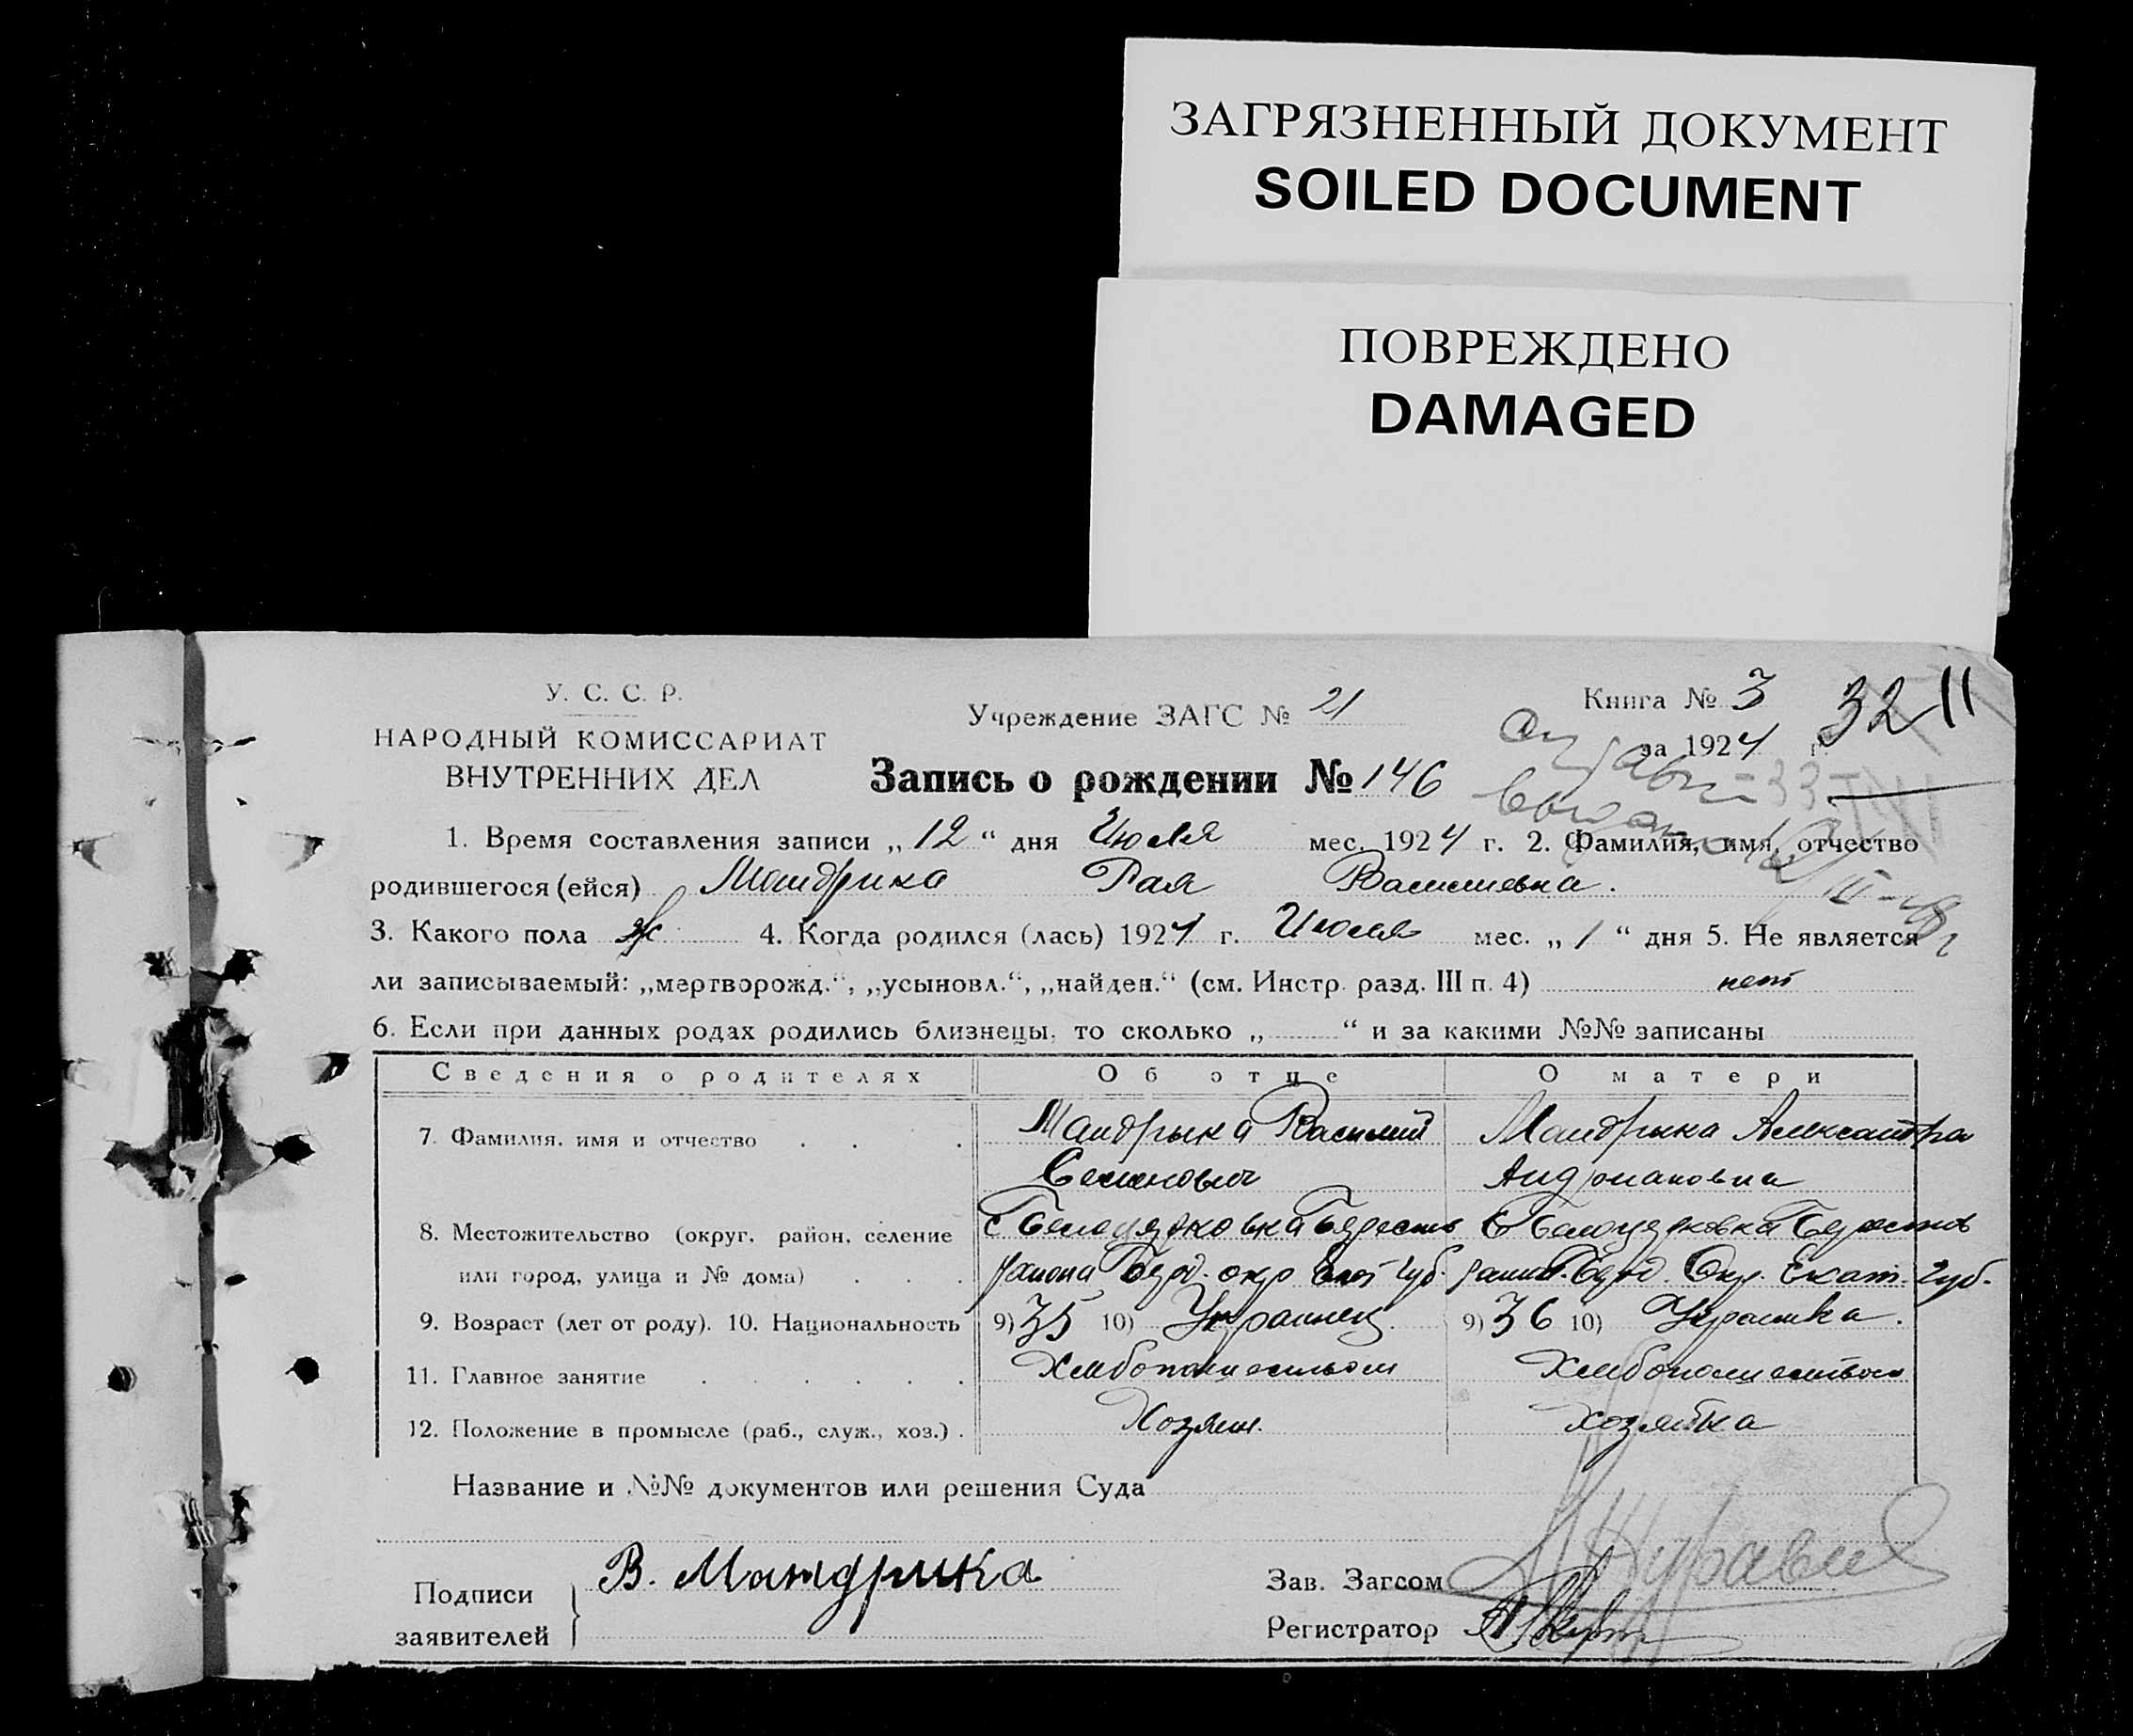 ЗАГРЯЗНЕННЫЙ ДОКУМЕНТ
SOILED DOCUMENT
ПОВРЕЖДЕНО
DAMAGED
У. С. С. Р.
НАРОДНЫЙ КОМИССАРИАТ
ВНУТРЕННИХ ДЕЛ
Учреждение ЗАГС № 21
Книга № 3
32 11
за 1924 г.
Запись о рождении № 146
1. Время составления записи „12“ дня Июля мес. 1924 г. 2. Фамилия, имя, отчество
родившегося (ейся) Мандрика Рая Васильевна.
3. Какого пола ж 4. Когда родился (лась) 1924 г. Июля мес. „1“ дня 5. Не является
ли записываемый: „мертворожд.“, „усыновл.“, „найден.“ (см. Инстр. разд. III п. 4) нет
6. Если при данных родах родились близнецы, то сколько „ “ и за какими №№ записаны
Сведения о родителях Об отце О матери
7. Фамилия, имя и отчество Мандрыка Василий Мандрыка Александра
Семенович Андриановна
8. Местожительство (округ, район, селение с Белоцерковка Берестов С Белоцерковка Берестов
или город, улица и № дома) района Берд. окр Губ. Берд. Окр. Екат. Губ.
9. Возраст (лет от роду). 10. Национальность 9) 35 10) Украинец 9) 36 10) Украинка.
11. Главное занятие Хлебопашеством Хлебопашеством
12. Положение в промысле (раб., служ., хоз.) Хозяин. хозяйка
Название и №№ документов или решения Суда
Подписи
заявителей
В. Мандрика
Зав. Загсом
Регистратор